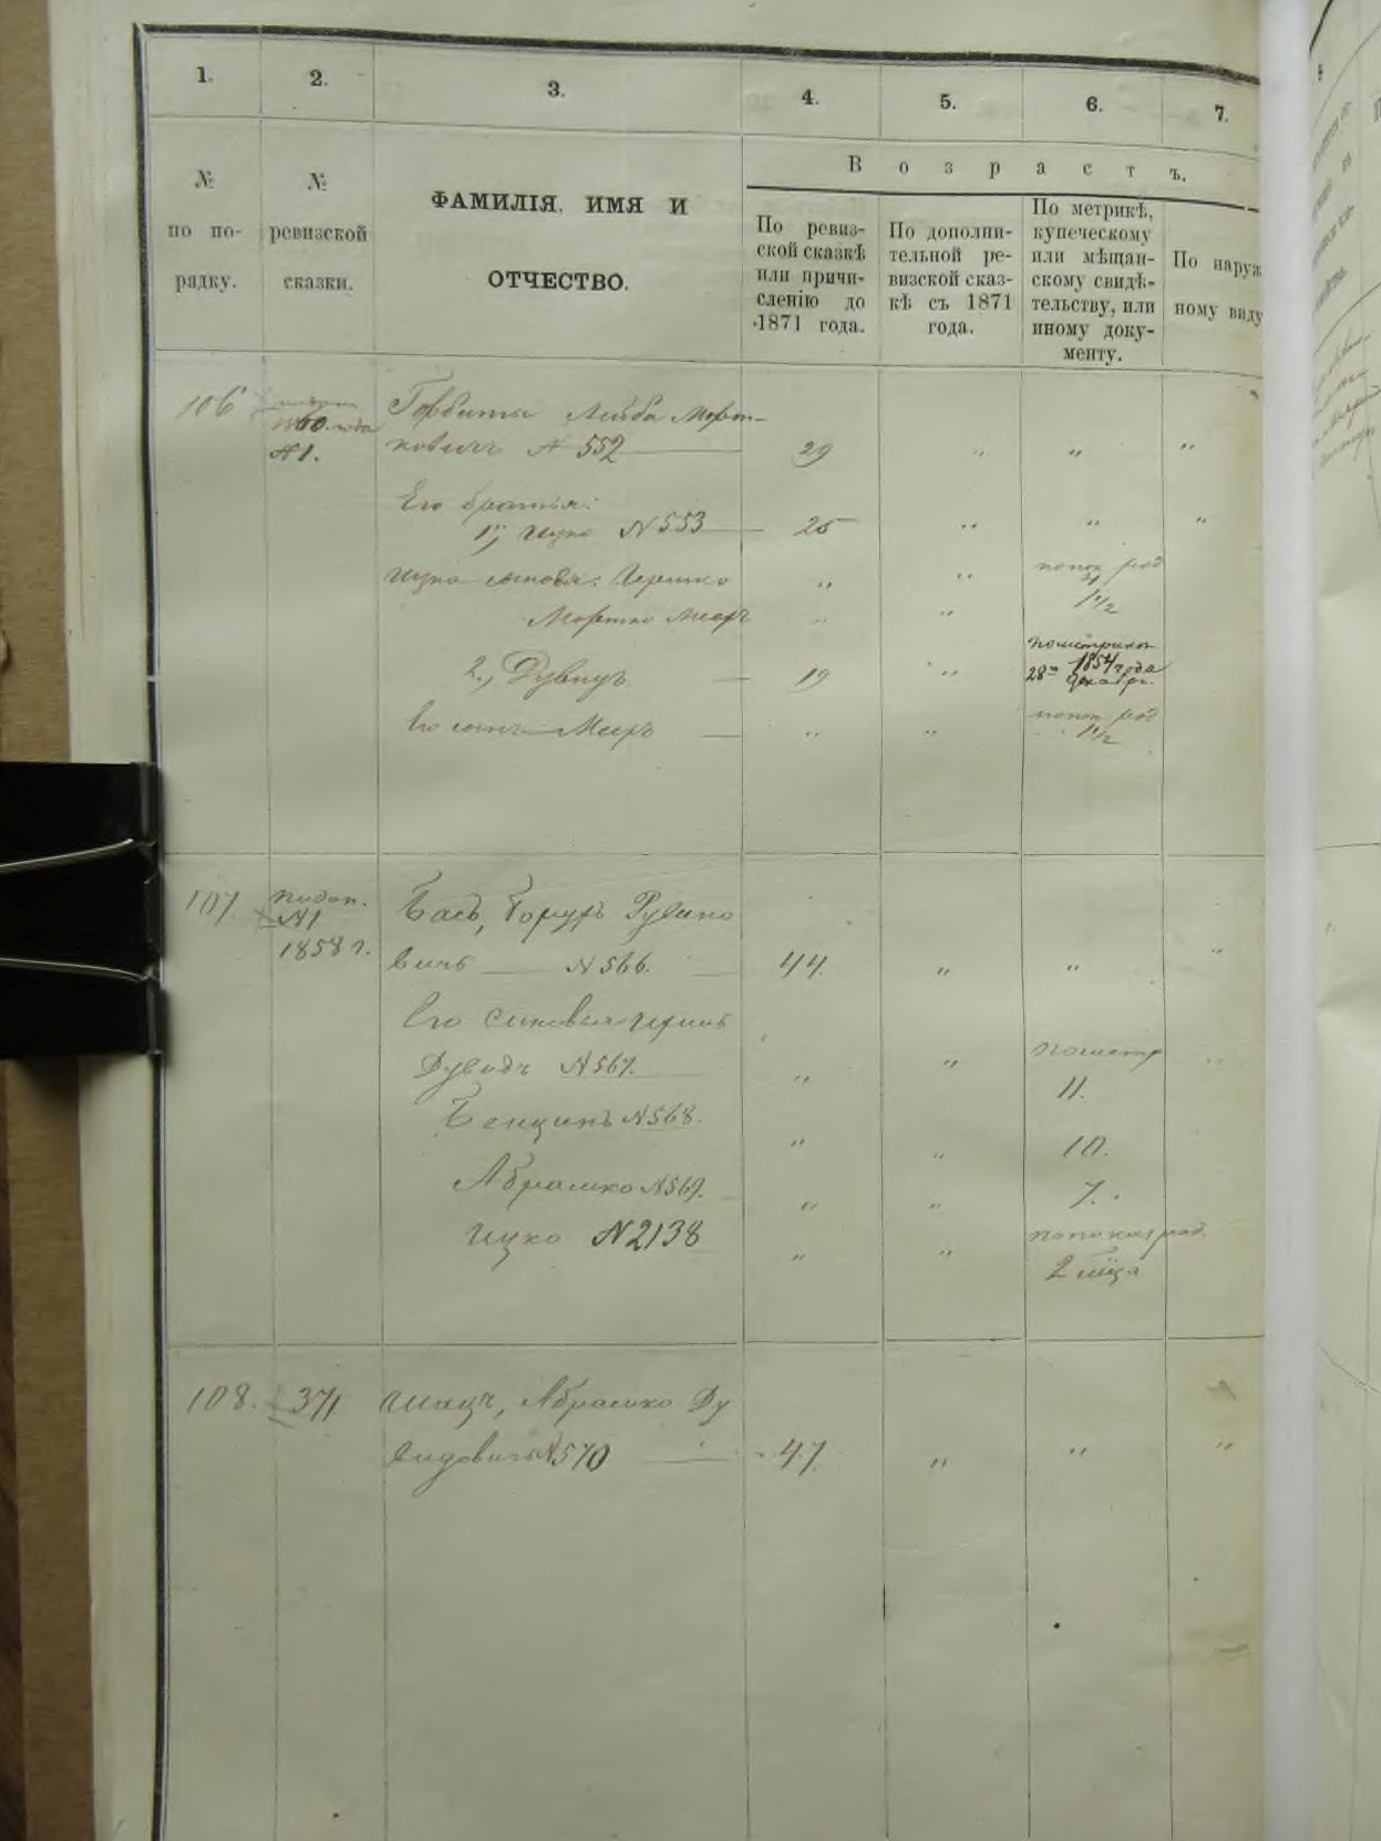 1. 2. 3. 4. 5. 6. 7.
№ по по-рядку.
№ ревизской сказки.
ФАМИЛІЯ, ИМЯ И
ОТЧЕСТВО.
Возрастъ.
По ревиз-
ской сказкѣ
или причи-
сленію до
1871 года.
По дополни-
тельной ре-
визской сказ-
кѣ съ 1871
года.
По метрикѣ,
купеческому
или мѣщан-
скому свидѣ-
тельству, или
иному доку-
менту.
По наруж
ному виду
106
1860. года
№ 1.
Лейба Морт-
ковичъ № 552 29 " " "
Его братья:
1", Ицко № 553 25 " " "
Ицко сыновья: Гершко " "
Мортко Меер " " 1 1/2
2., Дувидъ 19 " 1854 года
28го Декабр.
Его сынъ Мееръ " " 1 1/2
107.
№1
1858 г.
Басъ, Борухъ Рувино
вичъ № 566. 44. " " "
Его сыновья
Дувидъ № 567. " " 11.
Бенцинъ № 568. " " 10.
Абрамко № 569. " " 7.
Ицко № 2138 " "
2 м-ца
108. 371 Абрамко Ду
видовичъ № 570 47 " " "